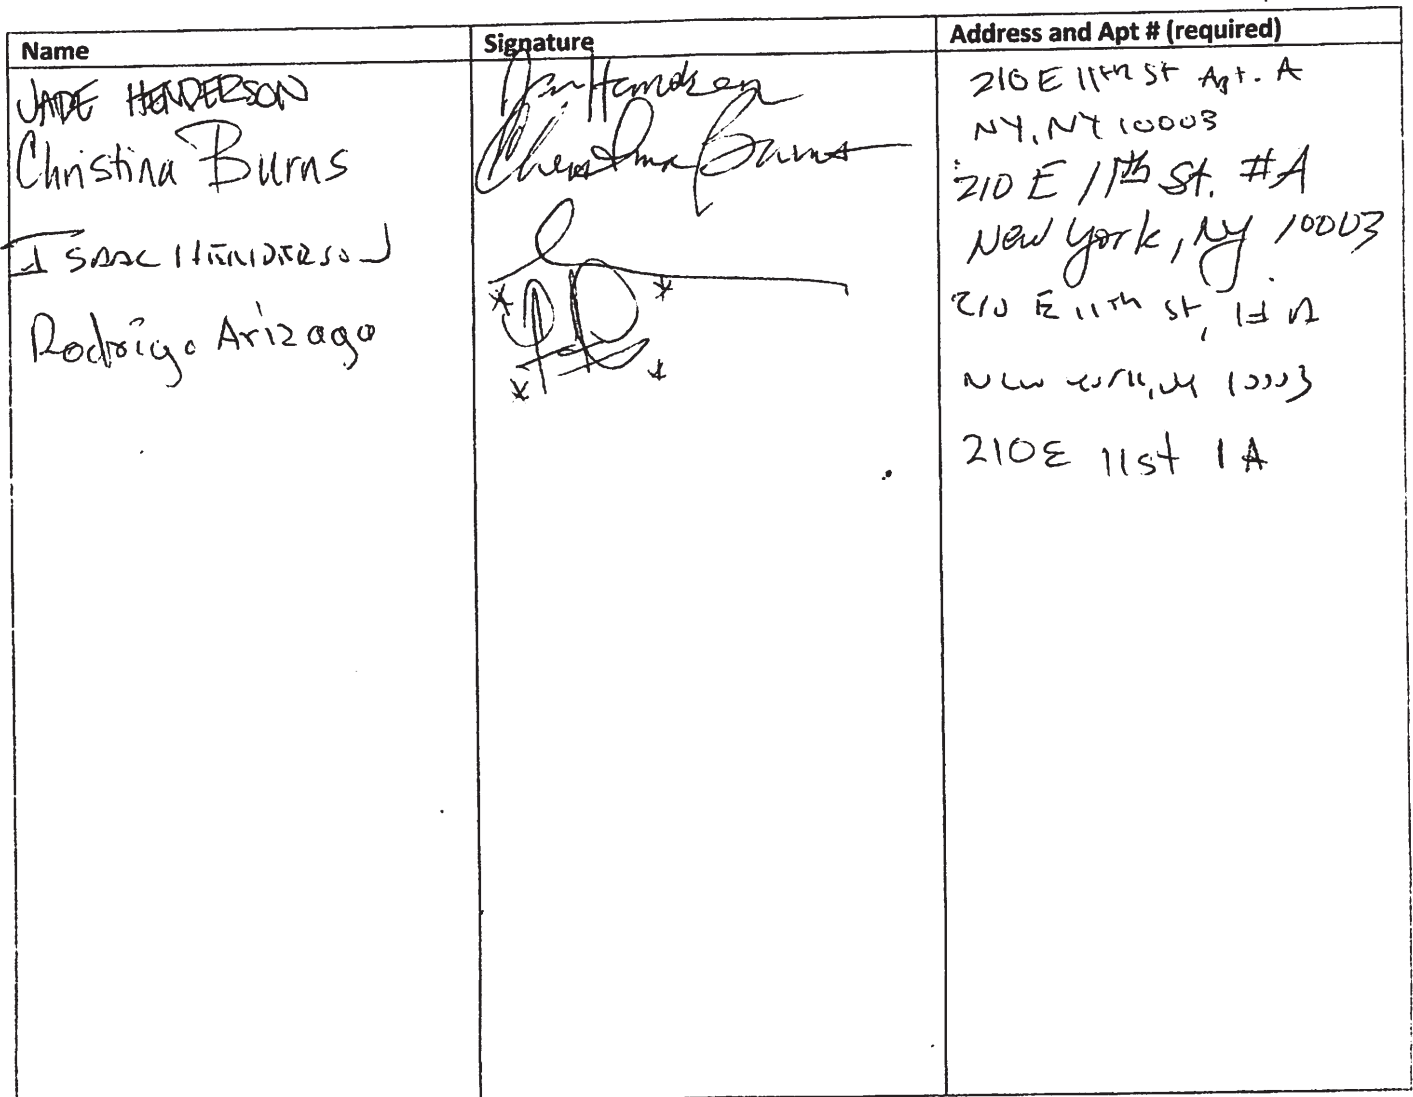 Name Signature Address and Apt # (required)
JADE HENDERSON 210 E 11th St Apt. A
NY, NY 10003
Christina Burns Christina Burns 210 E 11th St. #A
New York, NY 10003
ISAAC HENDERSON 210 E 11th St, # A
New York, NY 10003
Rodrigo Arizaga
210 E 11 st 1 A